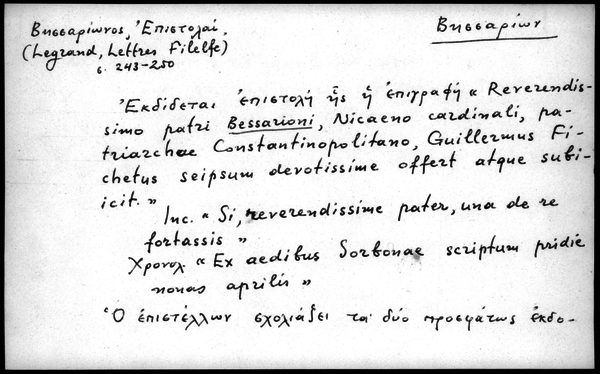 Βησσαρίωνος, Ἐπιστολαί.
Βησσαρίων
(Legrand, Lettres Filelfe)
σ. 243-250
Ἐκδίδεται ἐπιστολή ἧς ἡ ἐπιγραφή « Reverendis-
simo patri Bessarioni, Nicaeno cardinali, pa-
triarchae Constantinopolitano, Guillermus Fi-
chetus seipsum devotissime offert atque subi-
icit. »
Inc. « Si, reverendissime pater, una de re
fortassis »
Χρονολ. « Ex aedibus Sorbonae scriptum pridie
nonas aprilis »
Ὁ ἐπιστέλλων σχολιάζει τα δύο προσφάτως ἐκδο-